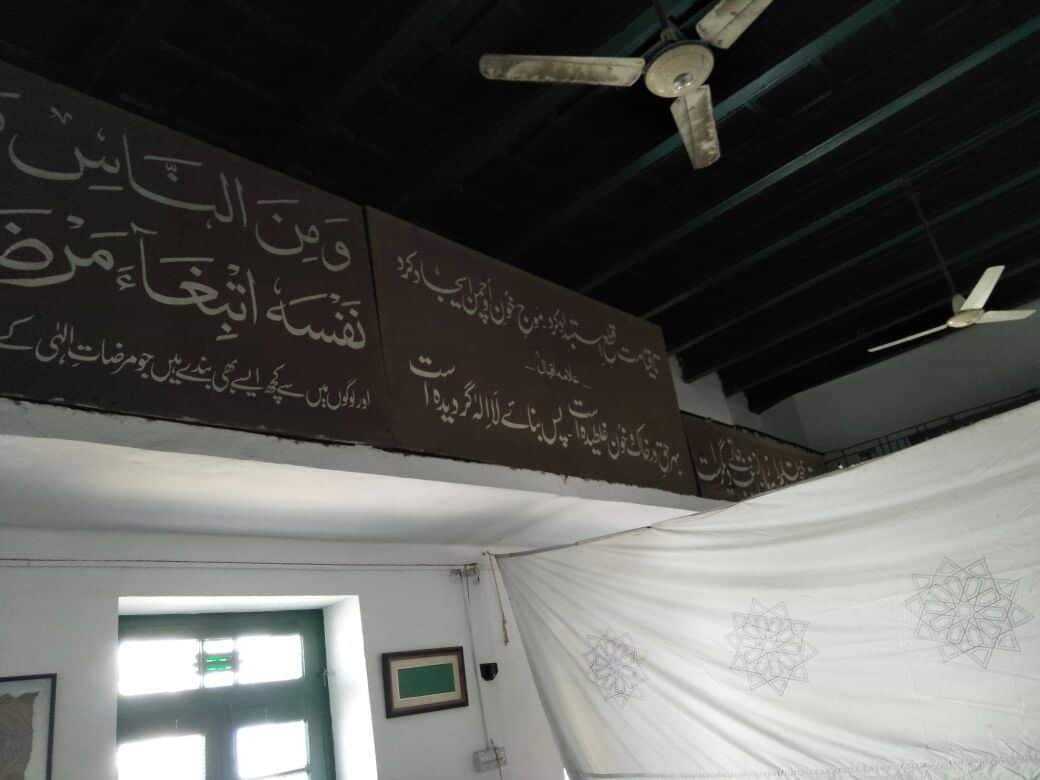 وَمِنَ النَّاسِ
نَفْسَهُ ابْتِغَآءَ
اور لوگوں میں سے کچھ ایسے بھی بندے ہیں جو مرضاتِ الٰہی کے
تا قیامت قطع استبداد کرد۔ موجِ خونِ او چمن ایجاد کرد
- علامہ اقبالؒ -
بہر حق در خاک و خون غلطیدہ است۔ پس بنائے لَا اِلٰہ گردیدہ است